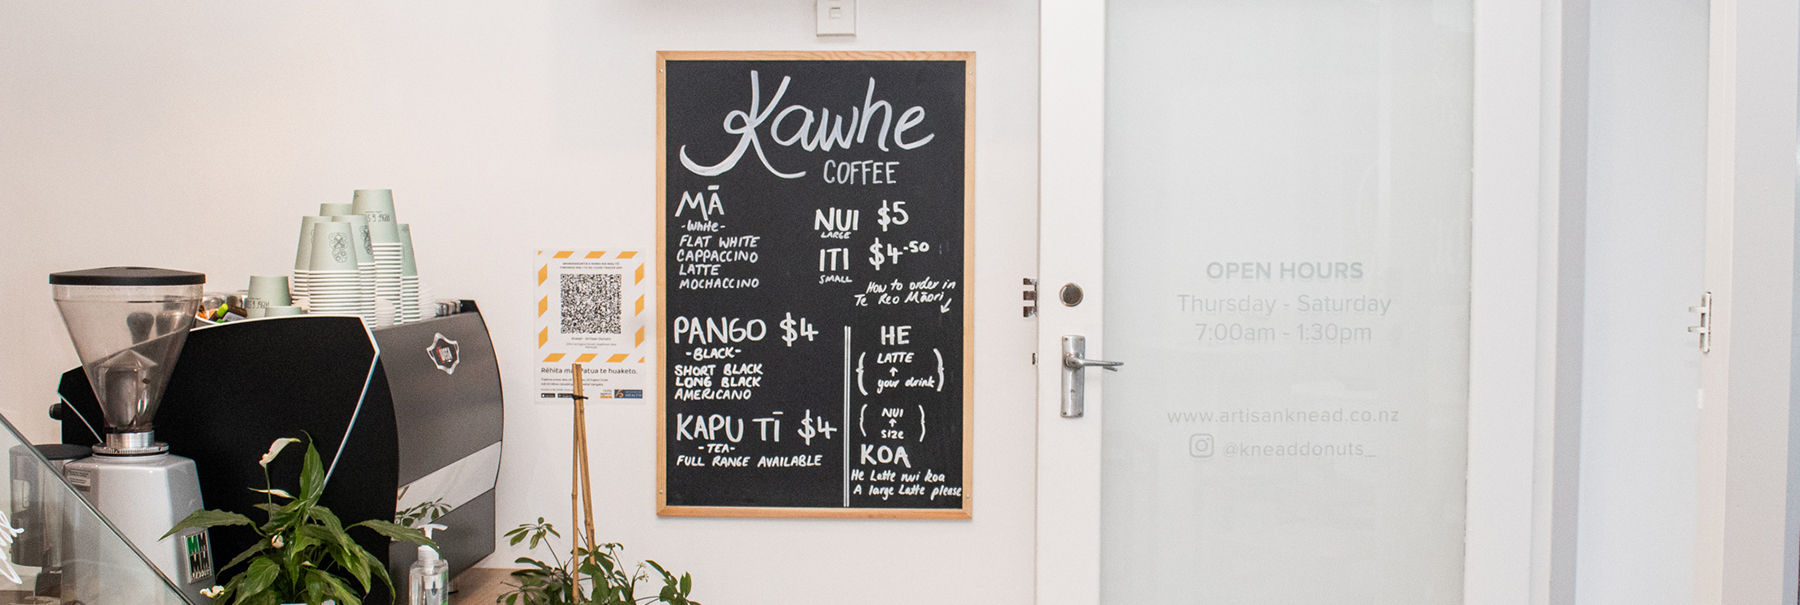 Kawhe
COFFEE
MĀ
-White-
FLAT WHITE
CAPPACCINO
LATTE
MOCHACCINO
NUI $5
LARGE
ITI $4-50
SMALL
How to order in
Te Reo Māori
PANGO $4
-BLACK-
SHORT BLACK
LONG BLACK
AMERICANO
KAPU TĪ $4
-TEA-
FULL RANGE AVAILABLE
HE
(LATTE
↑
your drink)
(NUI
↑
SIZE)
KOA
He Latte nui koa
A large Latte please
OPEN HOURS
Thursday - Saturday
7:00am - 1:30pm
www.artisanknead.co.nz
@kneaddonuts_
Rēhita patua te huaketo.